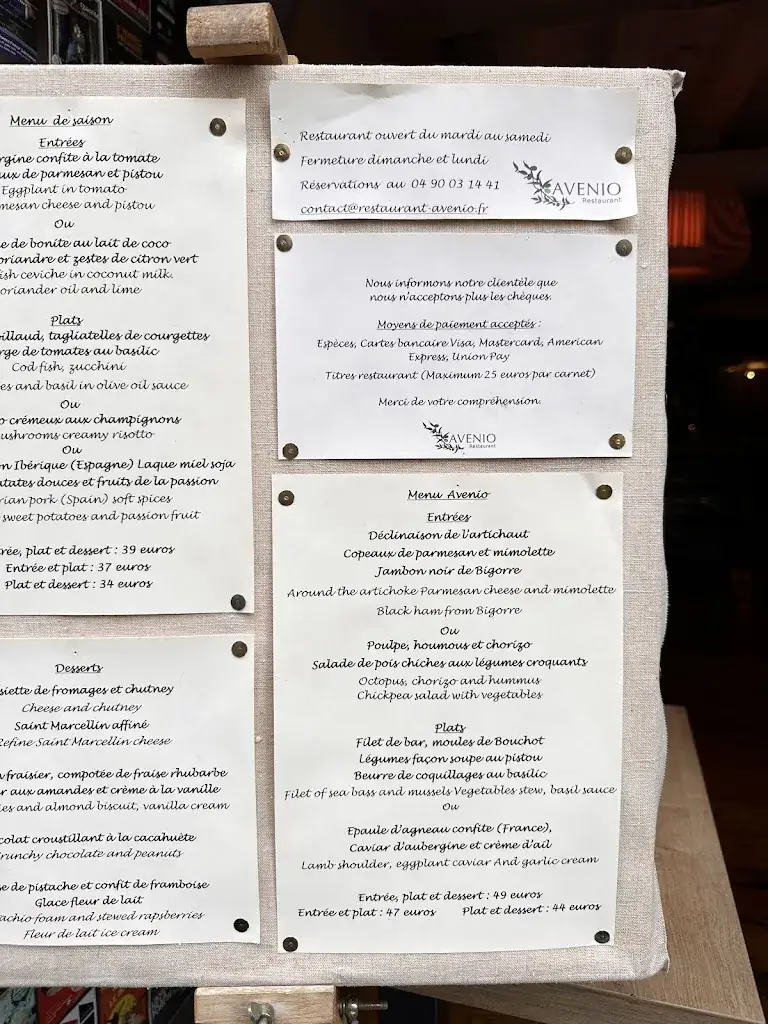 Menu de saison
Entrées
rgine confite à la tomate
ux de parmesan et pistou
Eggplant in tomato
mesan cheese and pistou
Ou
e de bonite au lait de coco
oriandre et zestes de citron vert
ish ceviche in coconut milk.
oriander oil and lime
Plats
illaud, tagliatelles de courgettes
rge de tomates au basilic
Cod fish, zucchini
es and basil in olive oil sauce
Ou
o crémeux aux champignons
ushrooms creamy risotto
Ou
n Ibérique (Espagne) Laque miel soja
atates douces et fruits de la passion
rian pork (Spain) soft spices
sweet potatoes and passion fruit
rée, plat et dessert : 39 euros
Entrée et plat : 37 euros
Plat et dessert : 34 euros
Desserts
siette de fromages et chutney
Cheese and chutney
Saint Marcellin affiné
Refine Saint Marcellin cheese
fraisier, compotée de fraise rhubarbe
r aux amandes et crème à la vanille
ies and almond biscuit, vanilla cream
colat croustillant à la cacahuète
runchy chocolate and peanuts
se de pistache et confit de framboise
Glace fleur de lait
achio foam and stewed rapsberries
Fleur de lait ice cream
Restaurant ouvert du mardi au samedi
Fermeture dimanche et lundi
Réservations au 04 90 03 14 41
contact@restaurant-avenio.fr
AVENIO
Restaurant
Nous informons notre clientèle que
nous n'acceptons plus les chèques.
Moyens de paiement acceptés :
Espèces, Cartes bancaire Visa, Mastercard, American
Express, Union Pay
Titres restaurant (Maximum 25 euros par carnet)
Merci de votre compréhension.
AVENIO
Restaurant
Menu Avenio
Entrées
Déclinaison de l'artichaut
Copeaux de parmesan et mimolette
Jambon noir de Bigorre
Around the artichoke Parmesan cheese and mimolette
Black ham from Bigorre
Ou
Poulpe, houmous et chorizo
Salade de pois chiches aux légumes croquants
Octopus, chorizo and hummus
Chickpea salad with vegetables
Plats
Filet de bar, moules de Bouchot
Légumes façon soupe au pistou
Beurre de coquillages au basilic
Filet of sea bass and mussels Vegetables stew, basil sauce
Ou
Epaule d'agneau confite (France),
Caviar d'aubergine et crème d'ail
Lamb shoulder, eggplant caviar And garlic cream
Entrée, plat et dessert : 49 euros
Entrée et plat : 47 euros Plat et dessert : 44 euros